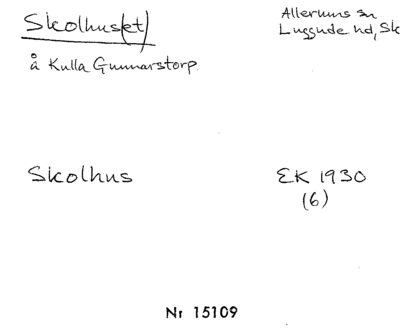 Skolhus(et)
Allerums sn
Luggude hd, Sk
å Kulla Gunnarstorp
Skolhus
EK 1930
(6)
Nr 15109